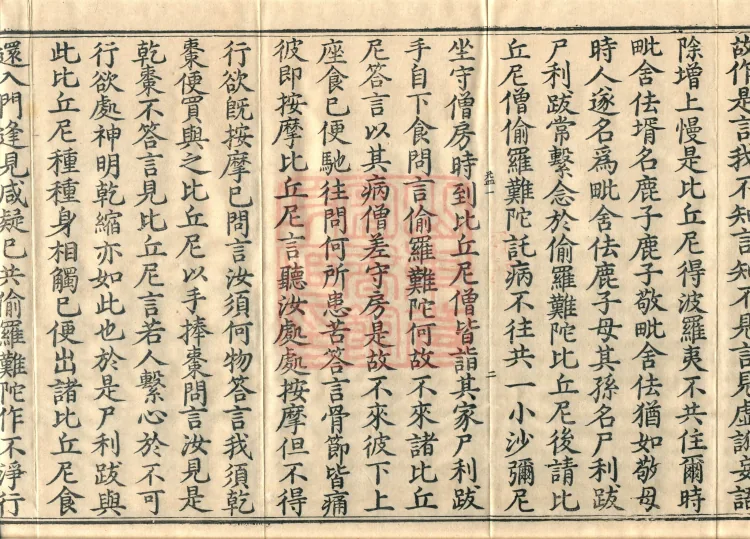 故作是言我不知言知不見言見虛誑妄語
除增上慢是比丘尼得波羅夷不共住爾時
毗舍佉壻名鹿子鹿子敬毗舍佉猶如敬母
時人遂名爲毗舍佉鹿子母其孫名尸利跋
尸利跋常繫念於偷羅難陀比丘尼後請比
丘尼僧偷羅難陀託病不往共一小沙彌尼
益一
二
坐守僧房時到比丘尼僧皆詣其家尸利跋
手自下食問言偷羅難陀何故不來諸比丘
尼答言以其病僧差守房是故不來彼下上
座食已便馳往問何所患苦答言骨節皆痛
彼即按摩比丘尼言聽汝處處按摩但不得
行欲旣按摩已問言汝須何物答言我須乾
棗便買與之比丘尼以手捧棗問言汝見是
乾棗不答言見比丘尼言若人繫心於不可
行欲處神明乾縮亦如此也於是尸利跋與
此比丘尼種種身相觸已便出諸比丘尼食
還入門逢見咸疑已共偷羅難陀作不淨行